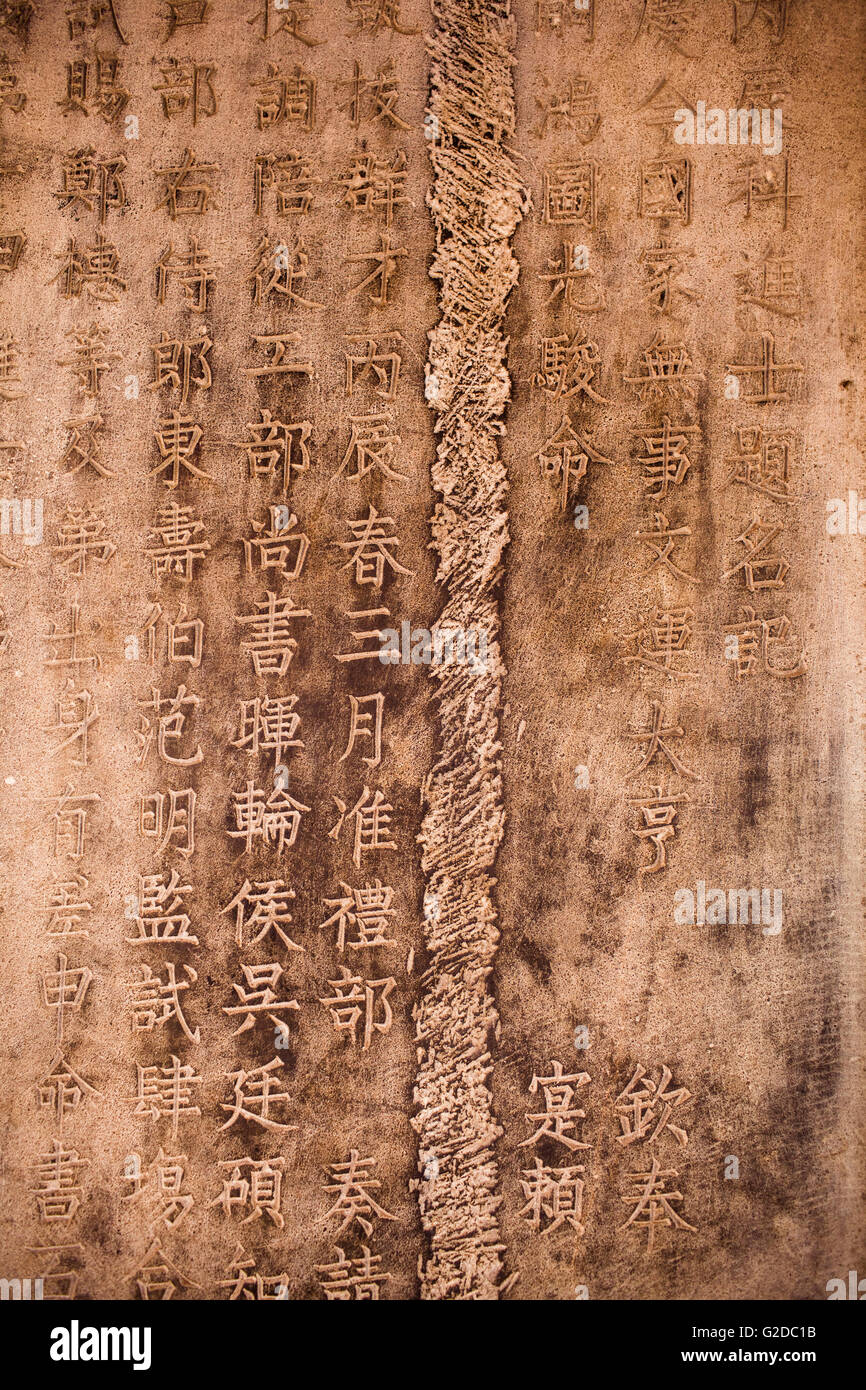 丙辰科進士題名記
慶今國家無事文運大亨 欽奉
嗣鴻圖光駿命 寔賴
拔群才丙辰春三月准禮部 奏請
從調陪從工部尚書暉輪侯吳廷碩知
戸部右侍郎東壽伯范明監試肆塲合
試賜鄭穗等及第出身有差申命書石
alamy
Image ID: G2DC1B
www.alamy.com